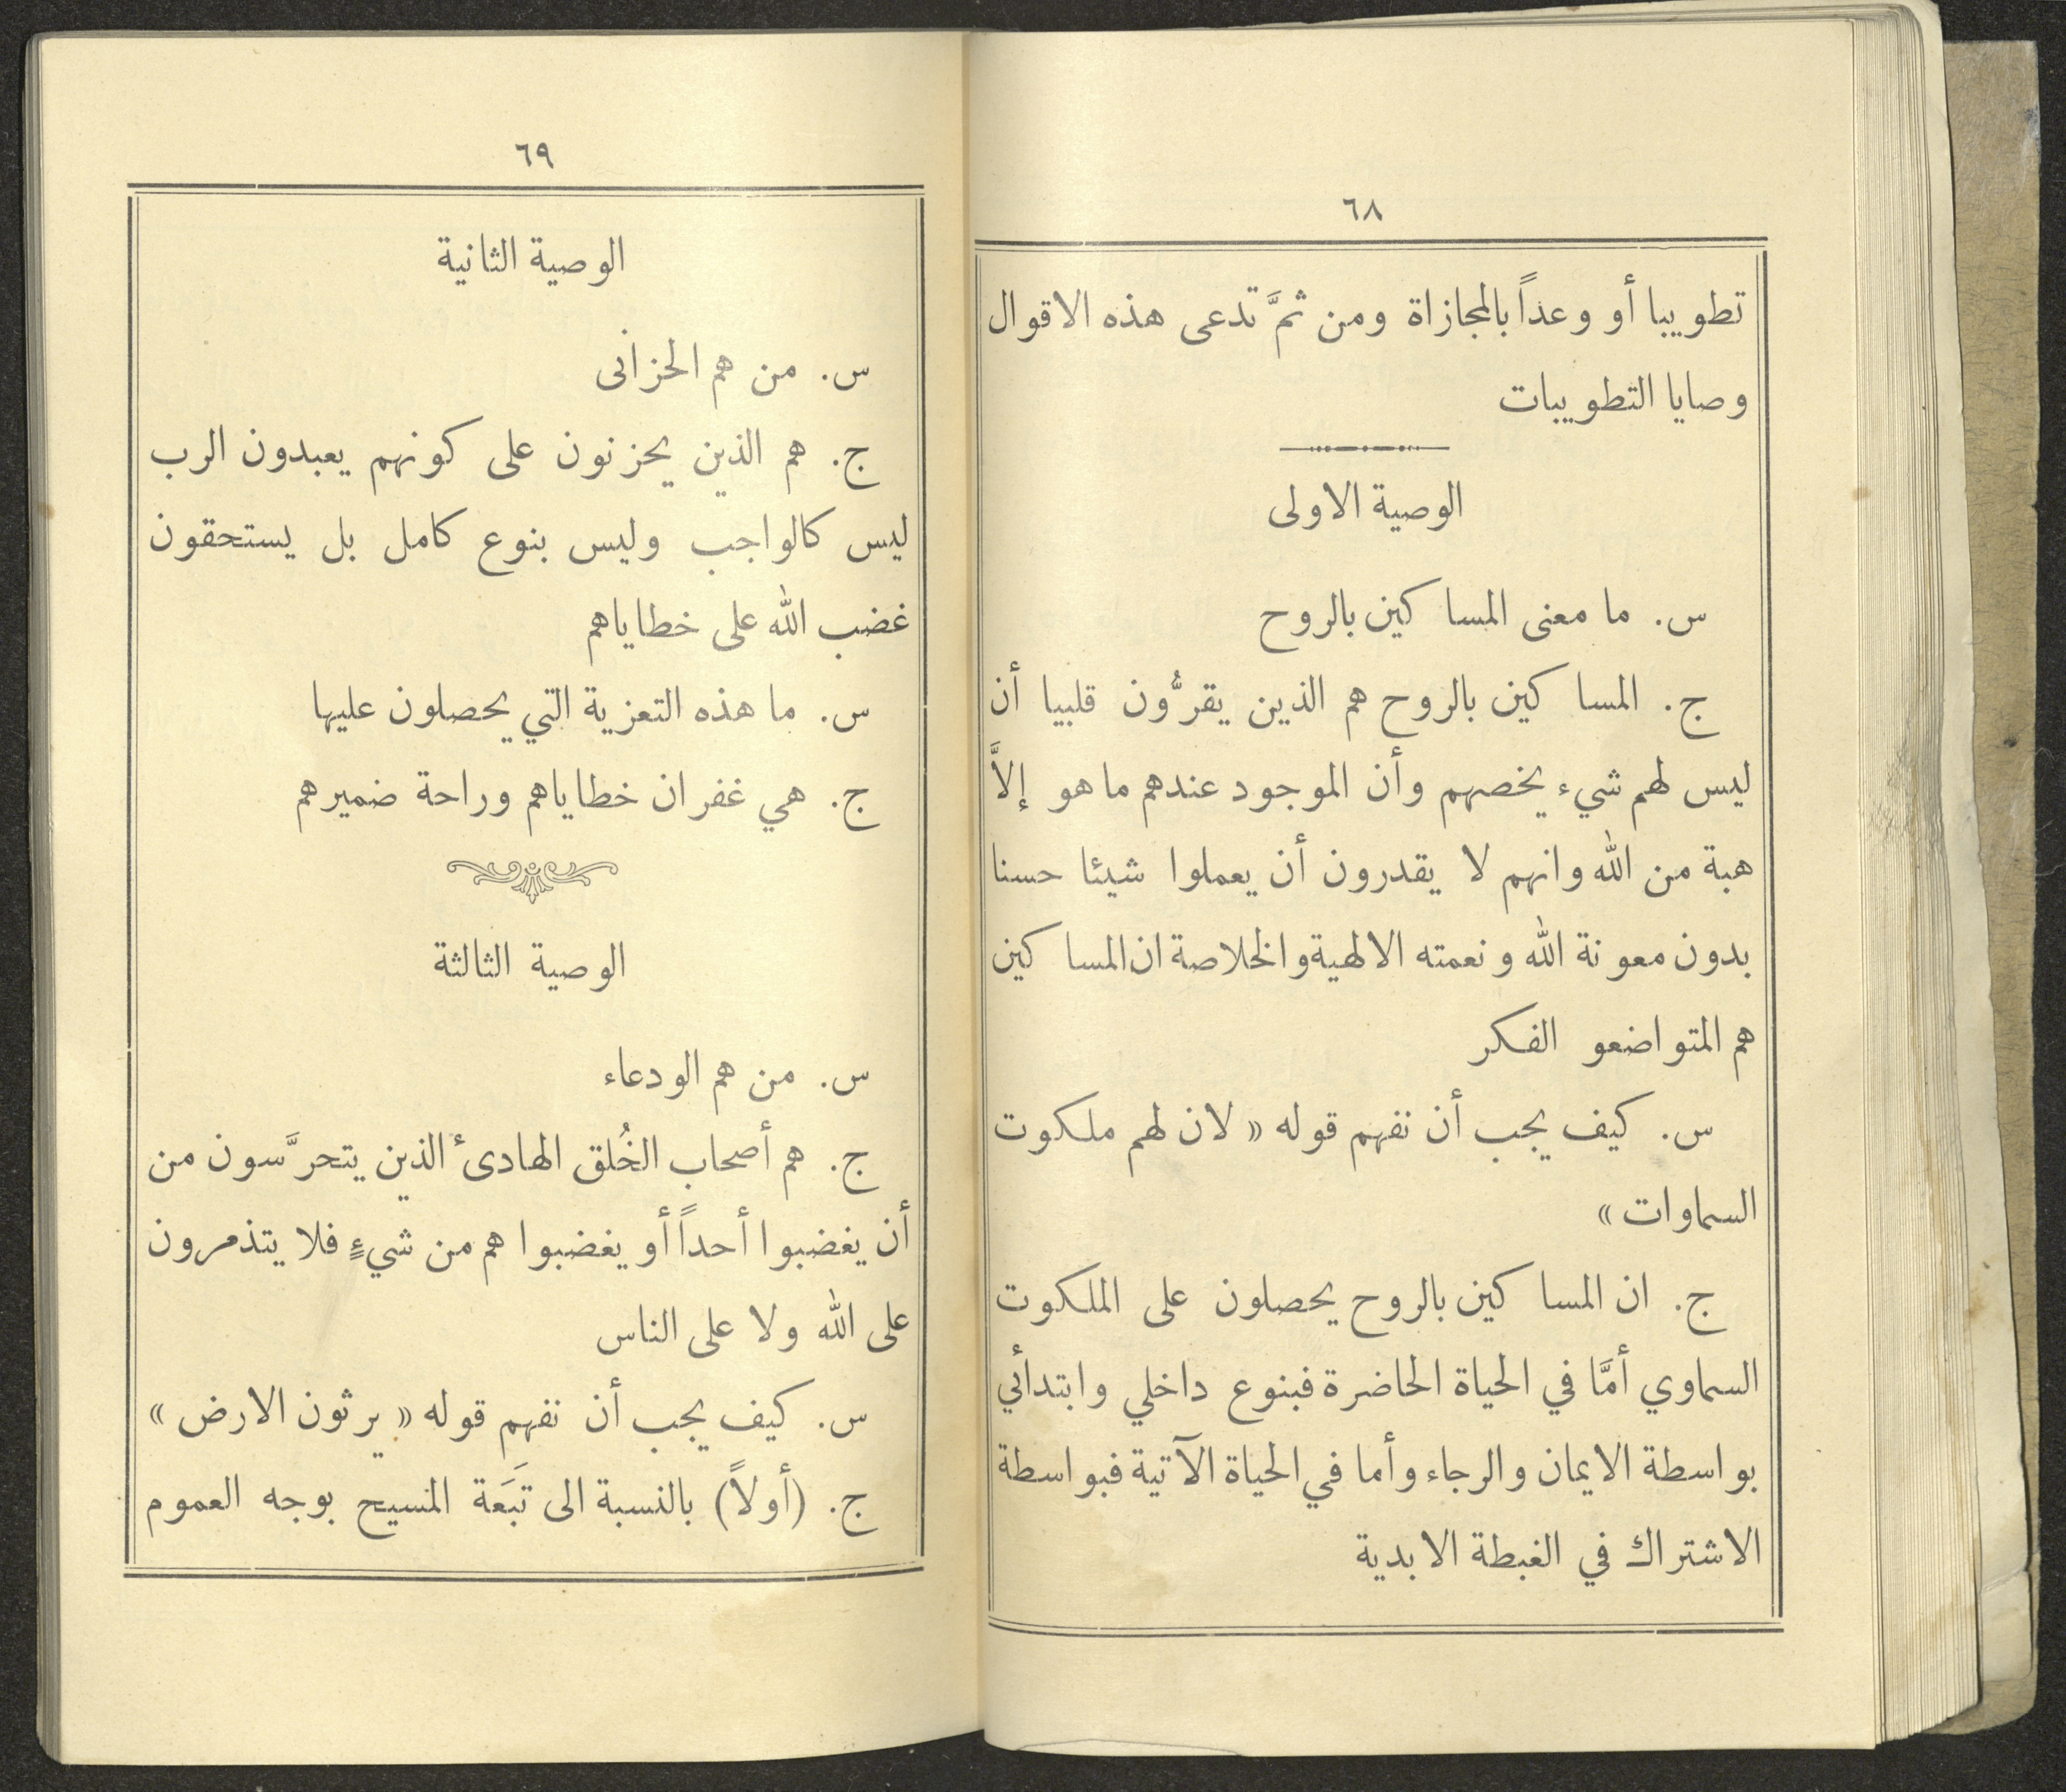 ٦٨
تطويبا أو وعداً بالمجازاة ومن ثمَّ تدعى هذه الاقوال
وصايا التطويبات
الوصية الاولى
س. ما معنى المساكين بالروح
ج. المساكين بالروح هم الذين يقرُّون قلبيا أن
ليس لهم شيء يخصهم وأن الموجود عندهم ما هو إلاَّ
هبة من الله وانهم لا يقدرون أن يعملوا شيئا حسنا
بدون معونة الله ونعمته الالهية والخلاصة ان المساكين
هم المتواضعو الفكر
س. كيف يجب أن نفهم قوله « لان لهم ملكوت
السماوات »
ج. ان المساكين بالروح يحصلون على الملكوت
السماوي أمَّا في الحياة الحاضرة فبنوع داخلي وابتدأئي
بواسطة الايمان والرجاء وأما في الحياة الآتية فبواسطة
الاشتراك في الغبطة الابدية
٦٩
الوصية الثانية
س. من هم الحزانى
ج. هم الذين يحزنون على كونهم يعبدون الرب
ليس كالواجب وليس بنوع كامل بل يستحقون
غضب الله على خطاياهم
س. ما هذه التعزية التي يحصلون عليها
ج. هي غفران خطاياهم وراحة ضميرهم
الوصية الثالثة
س. من هم الودعاء
ج. هم أصحاب الخُلق الهادئ الذين يتحرَّسون من
أن يغضبوا أحداً أو يغضبوا هم من شيءٍ فلا يتذمرون
على الله ولا على الناس
س. كيف يجب أن نفهم قوله « يرثون الارض »
ج. (أولاً) بالنسبة الى تَبَعَة المسيح بوجه العموم